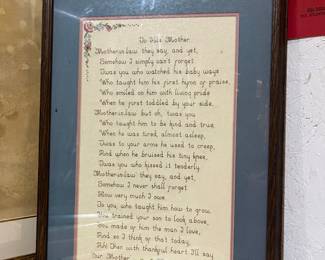 To His Mother
Mother-in-law they say, and yet,
Somehow I simply can't forget
Twas you who watched his baby ways
Who taught him his first hymn of praise,
Who smiled on him with loving pride
When he first toddled by your side.
Mother-in-law but oh, twas you
Who taught him to be kind and true
When he was tired, almost asleep,
Twas to your arms he used to creep,
And when he bruised his tiny knee,
Twas you who kissed it tenderly.
Mother-in-law they say, and yet,
Somehow I never shall forget
How very much I owe
To you, who taught him how to grow.
You trained your son to look above,
You made of him the man I love,
And so I think of that today,
Ah! Then with thankful heart I'll say
Our Mother